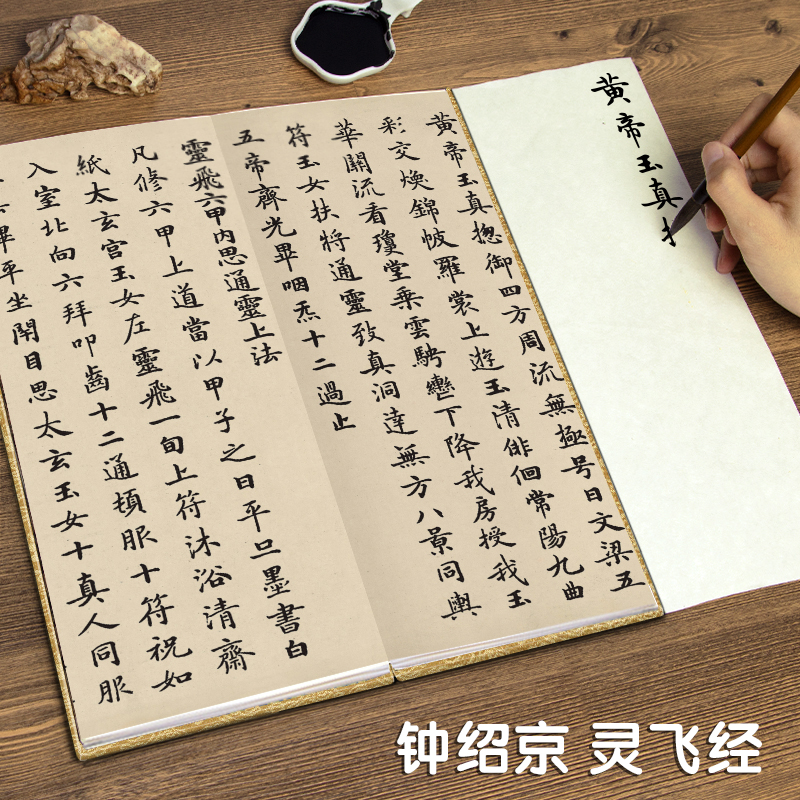 黄帝玉真
黄帝玉真揔御四方周流無極号曰文梁五
彩交煥錦帔羅裳上遊玉清俳佪常陽九曲
華關流看瓊堂乗雲駛轡下降我房授我玉
符玉女扶將通靈致真洞達無方八景同輿
五帝齊光畢咽炁十二過止
靈飛六甲内思通靈上法
凡修六甲上道當以甲子之日平旦墨書白
紙太玄宮玉女左靈飛一旬上符沐浴清齋
入室北向六拜叩齒十二通頓服十符祝如
畢平坐閇目思太玄玉女十真人同服
钟绍京 灵飞经